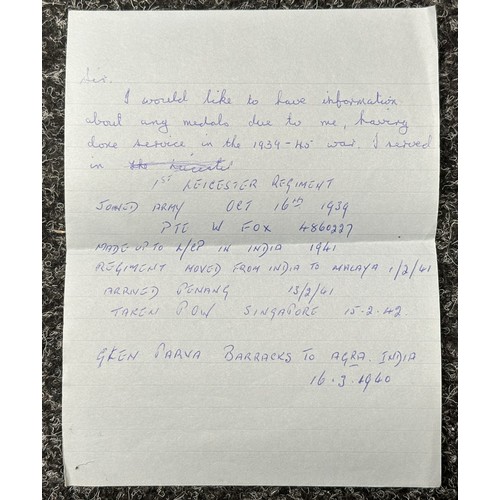 Sir.
I would like to have information
about any medals due to me, having
done service in the 1939-45 war. I served
in the Leicester
1ST LEICESTER REGIMENT
JOINED ARMY OCT 16TH 1939
PTE W FOX 4860227
MADE UP TO L/CP IN INDIA 1941
REGIMENT MOVED FROM INDIA TO MALAYA 1/2/41
ARRIVED PENANG 13/2/41
TAKEN POW SINGAPORE 15-2-42
GLEN PARVA BARRACKS TO AGRA. INDIA
16.3.1940